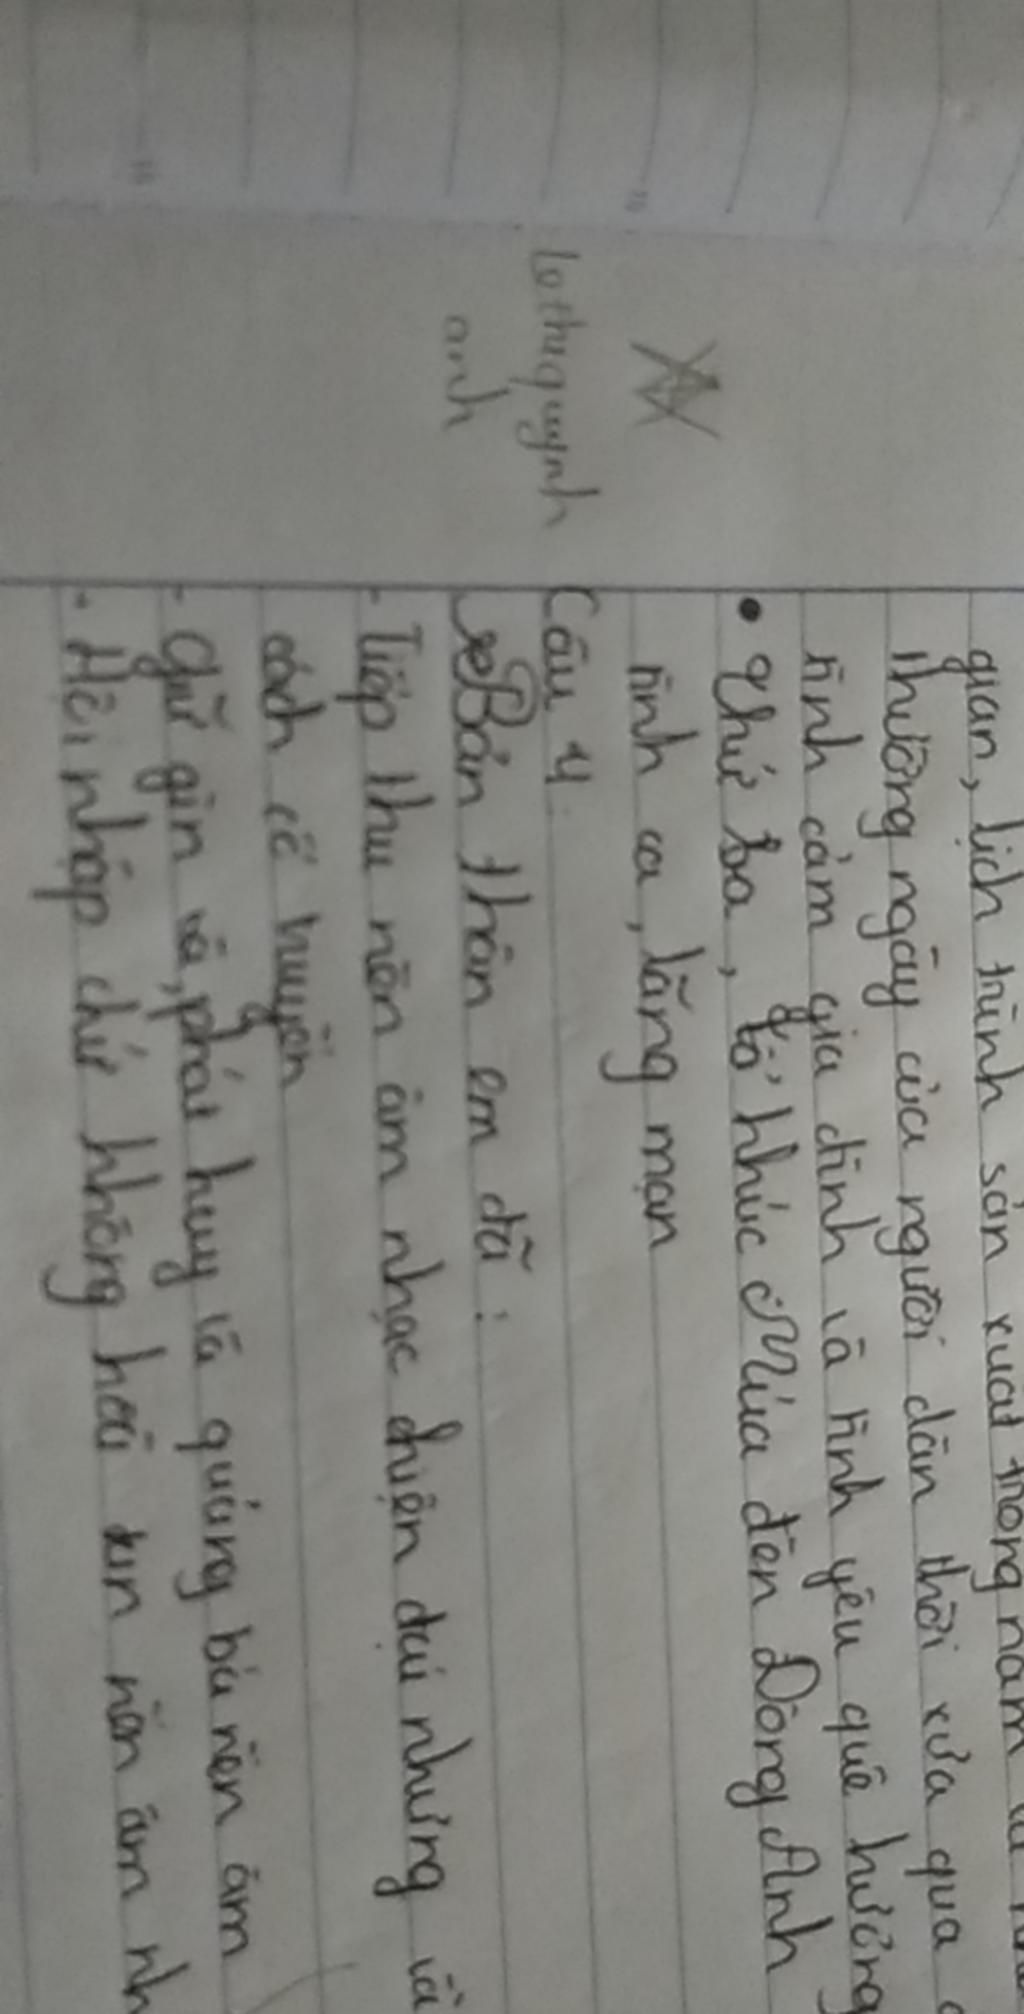 quan, lịch trình sản xuất trong năm
thường ngày của người dân thời xưa qua
tình cảm gia đình và tình yêu quê hương
• Thứ ba, tổ khúc Múa đèn Đông Anh
tình ca, lãng mạn
Câu 4.
Bản thân em đã:
- Tiếp thu nền âm nhạc hiện đại nhưng
cách có
- Giữ gìn và, phát huy và quảng bá nền âm
- Hội nhập chứ không hoà nền âm
Lethiquynh
anh